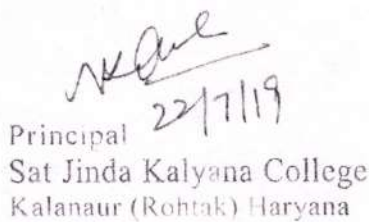 22/7/19
Principal
Sat Jinda Kalyana College
Kalanaur (Rohtak) Haryana